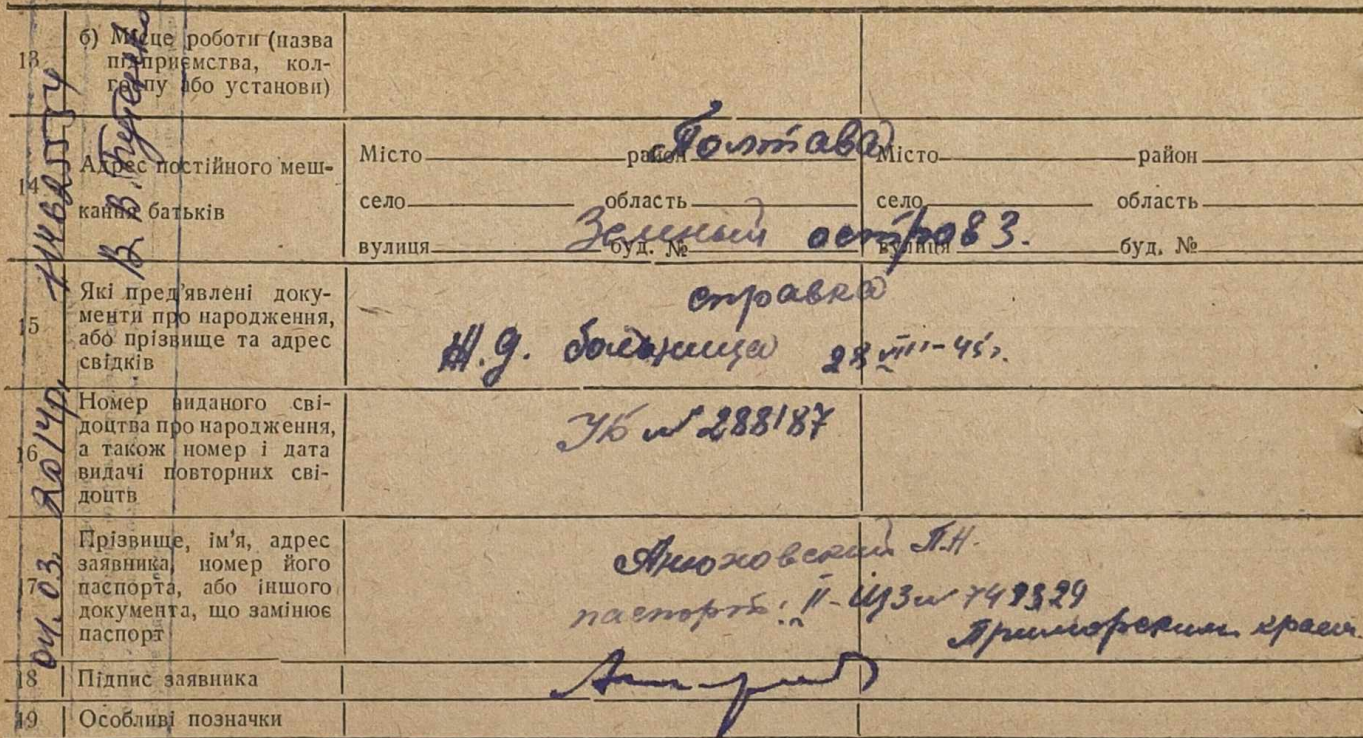 13
б) Місце роботи (назва
підприємства, кол-
госпу або установи)
14
Адрес постійного меш-
кання батьків
Місто район Місто район
г. Полтава
село область село область
Зеленый остров 3.
вулиця буд. № вулиця буд. №
15
Які пред'явлені доку-
менти про народження,
або прізвище та адрес
свідків
справка
Ж.д. больница 28 VIII-45 г.
16
Номер виданого сві-
доцтва про народження,
а також номер і дата
видачі повторних сві-
доцтв
УБ № 288187
17
Прізвище, ім'я, адрес
заявника, номер його
паспорта, або іншого
документа, що замінює
паспорт
Анюховский П.Н.
паспорт: II-ЦЗ №
Приморским краем
18
Підпис заявника
19
Особливі позначки
04.03.2014р.
В.В. Бутенко